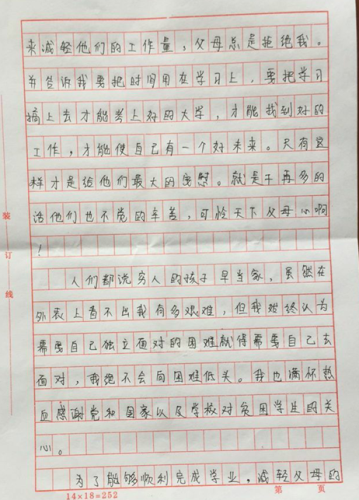 来减轻他们的工作量，父母总是拒绝我。
并告诉我要把时间用在学习上，要把学习
搞上去才能考上好的大学，才能找到好的
工作，才能使自己有一个好未来。只有这
样才是给他们最大的安慰。就是干再多的
活他们也不觉的辛苦，可怜天下父母心啊
！
人们都说穷人的孩子早当家，虽然在
外表上看不出我有多艰难，但我始终认为
需要自己独立面对的困难就得需要自己去
面对，我绝不会向困难低头。我也满怀热
血感谢党和国家以及学校对贫困学生的关
心。
为了能够顺利完成学业，减轻父母的
装
订
线
14×18=252
第 页